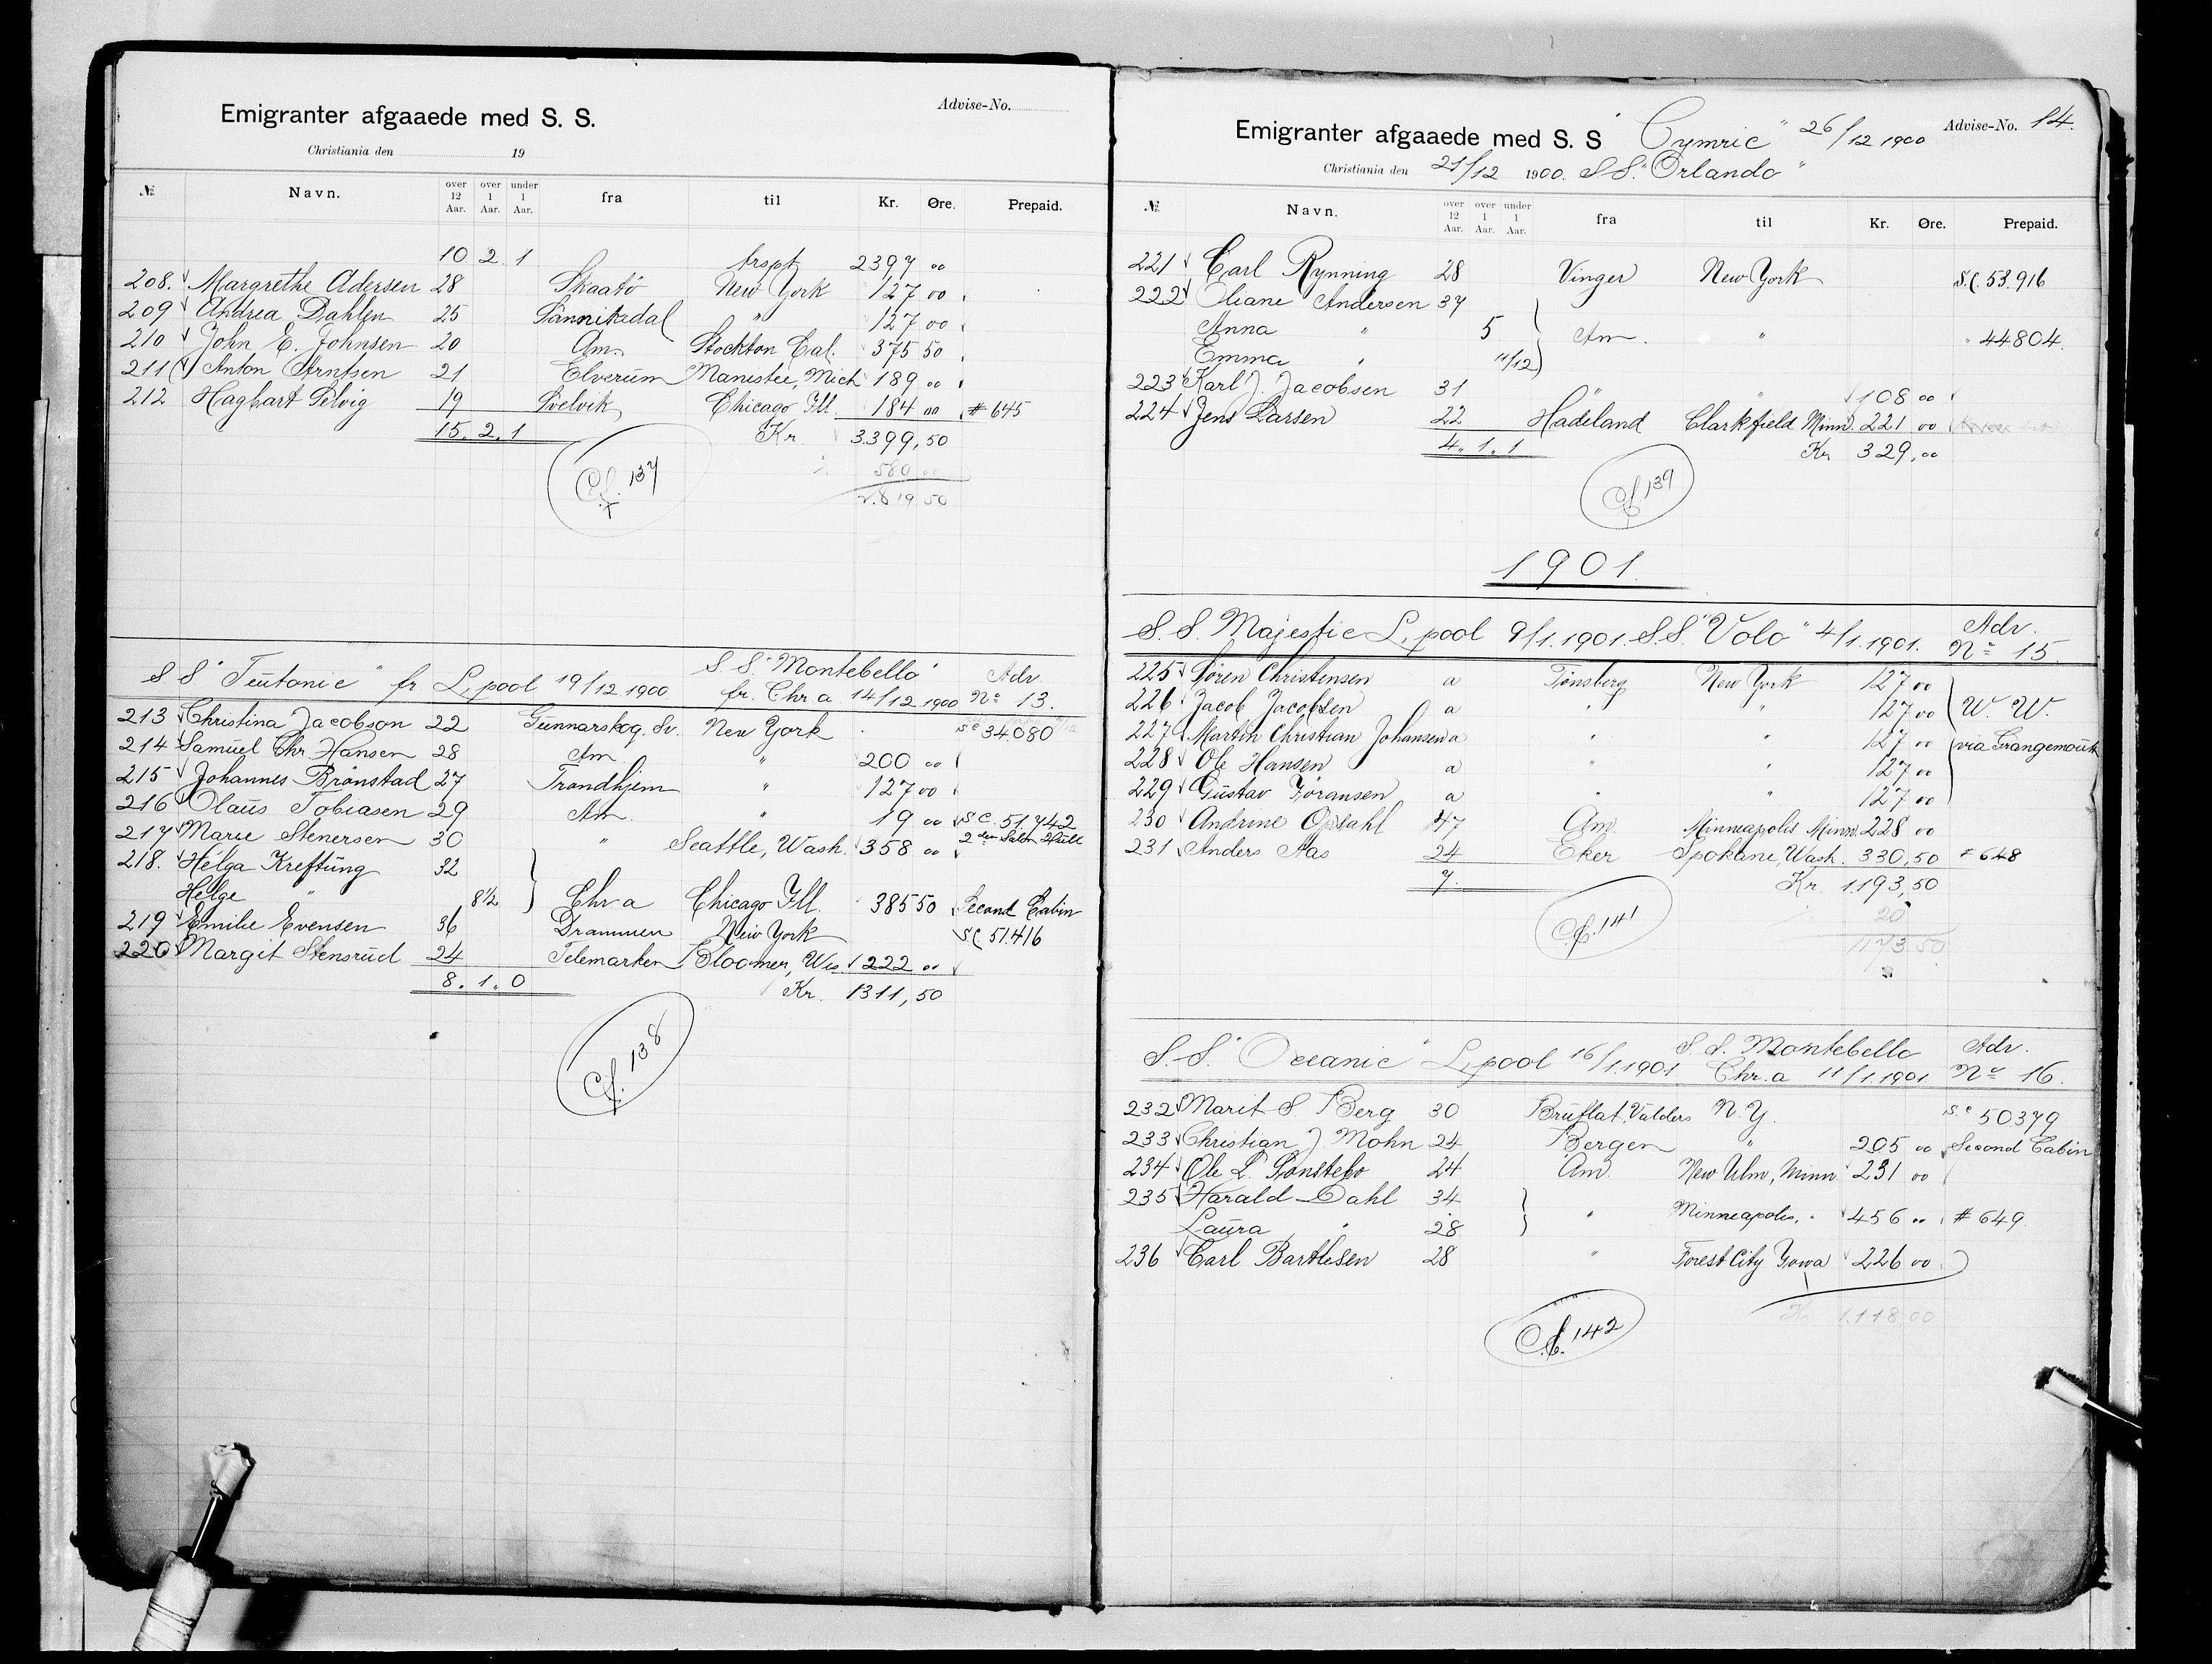 Emigranter afgaaede med S. S.
Advise-No.
Christiania den 19
№ Navn. over 12 Aar. over 1 Aar. under 1 Aar. fra til Kr. Øre. Prepaid.
10 2 1 trspt 2397 00
208. Margrethe Adersen 28 Skaatö New York 127 00
209 Andrea Dahlen 25 Sannikedal " 127 00
210 John E. Johnsen 20 Am. Stockton Cal. 375 50
211 Anton Arntsen 21 Elverum Manistee, Mich 189 00
212 Hagbart Selvig 19 Svelvik Chicago Ill. 184 00 # 645
15. 2. 1 Kr. 3399,50
Cf. 137
580 00
2.819 50
S S "Teutonic" fr. L.pool 19/12 1900 S S "Montebello" fr. Chr.a 14/12 1900 Adv. No 13.
213 Christina Jacobson 22 Gunnarskog. Sv. New York Sc 34.080
214 Samuel Chr. Hansen 28 Am. " 200 00
215 Johannes Brönstad 27 Trondhjem " 127 00
216 Olaus Tobiasen 29 Am. " 19 00 S.C. 51742
217 Marie Stenersen 30 " Seattle, Wash. 358 00
218. Helga Kreftung 32
Helge " 8½ Chr a Chicago Ill. 385 50 Second Cabin
219 Emilie Evensen 36 Drammen New York SC 51.416
220 Margit Stensrud 24 Telemarken Bloomer, Wis 222 00
8. 1. 0 Kr. 1311,50
Cf. 138
Emigranter afgaaede med S. S "Cymric" 26/12 1900 Advise-No. 14.
Christiania den 21/12 1900. S.S. "Orlando"
№ Navn. over 12 Aar. over 1 Aar. under 1 Aar. fra til Kr. Øre. Prepaid.
221 Carl Rynning 28 Vinger New York S.C. 53.916
222 Oliane Andersen 37
Anna " 5 Am. " " 44804.
Emma " 11/12
223 Karl J. Jacobsen 31 " " 108 00
224 Jens Larsen 22 Hadeland Clarkfield Minn. 221 00
4. 1. 1 Kr 329,00
Cf. 139
1901.
S. S. Majestic L.pool 9/1.1901. S.S. "Volo" 4/1.1901. Adv. No 15.
225 Sören Christensen a Tönsberg New York 127 00
226 Jacob Jacobsen a " " 127 00 W. W.
227 Martin Christian Johansen a " " 127 00 via Grangemouth
228 Ole Hansen a " " 127 00
229 Gustav Göransen a " " 127 00
230 Andrine Opdahl 47 Am. Minneapolis Minn. 228 00
231 Anders Aas 24 Eker Spokane, Wash. 330,50 # 648
7. Kr. 1.193,50
Cf. 141
20
1173.50
S. S. "Oceanic" L.pool 16/1.1901 S. S. Montebello Chr.a 11/1.1901 Adv. No 16.
232 Marit S Berg 30 Bruflat, Valders N. Y. S.c 50379
233 Christian J Mohn 24 Bergen " 205 00 Second Cabin
234 Ole L. Sönstebo 24 Am. New Ulm, Minn 231 00
235 Harald Dahl 34
Laura " 28 " Minneapolis, " 456 " # 649.
236 Carl Barthesen 28 " Forest City Iowa 226 00
Kr 1.118,00
Cf. 142